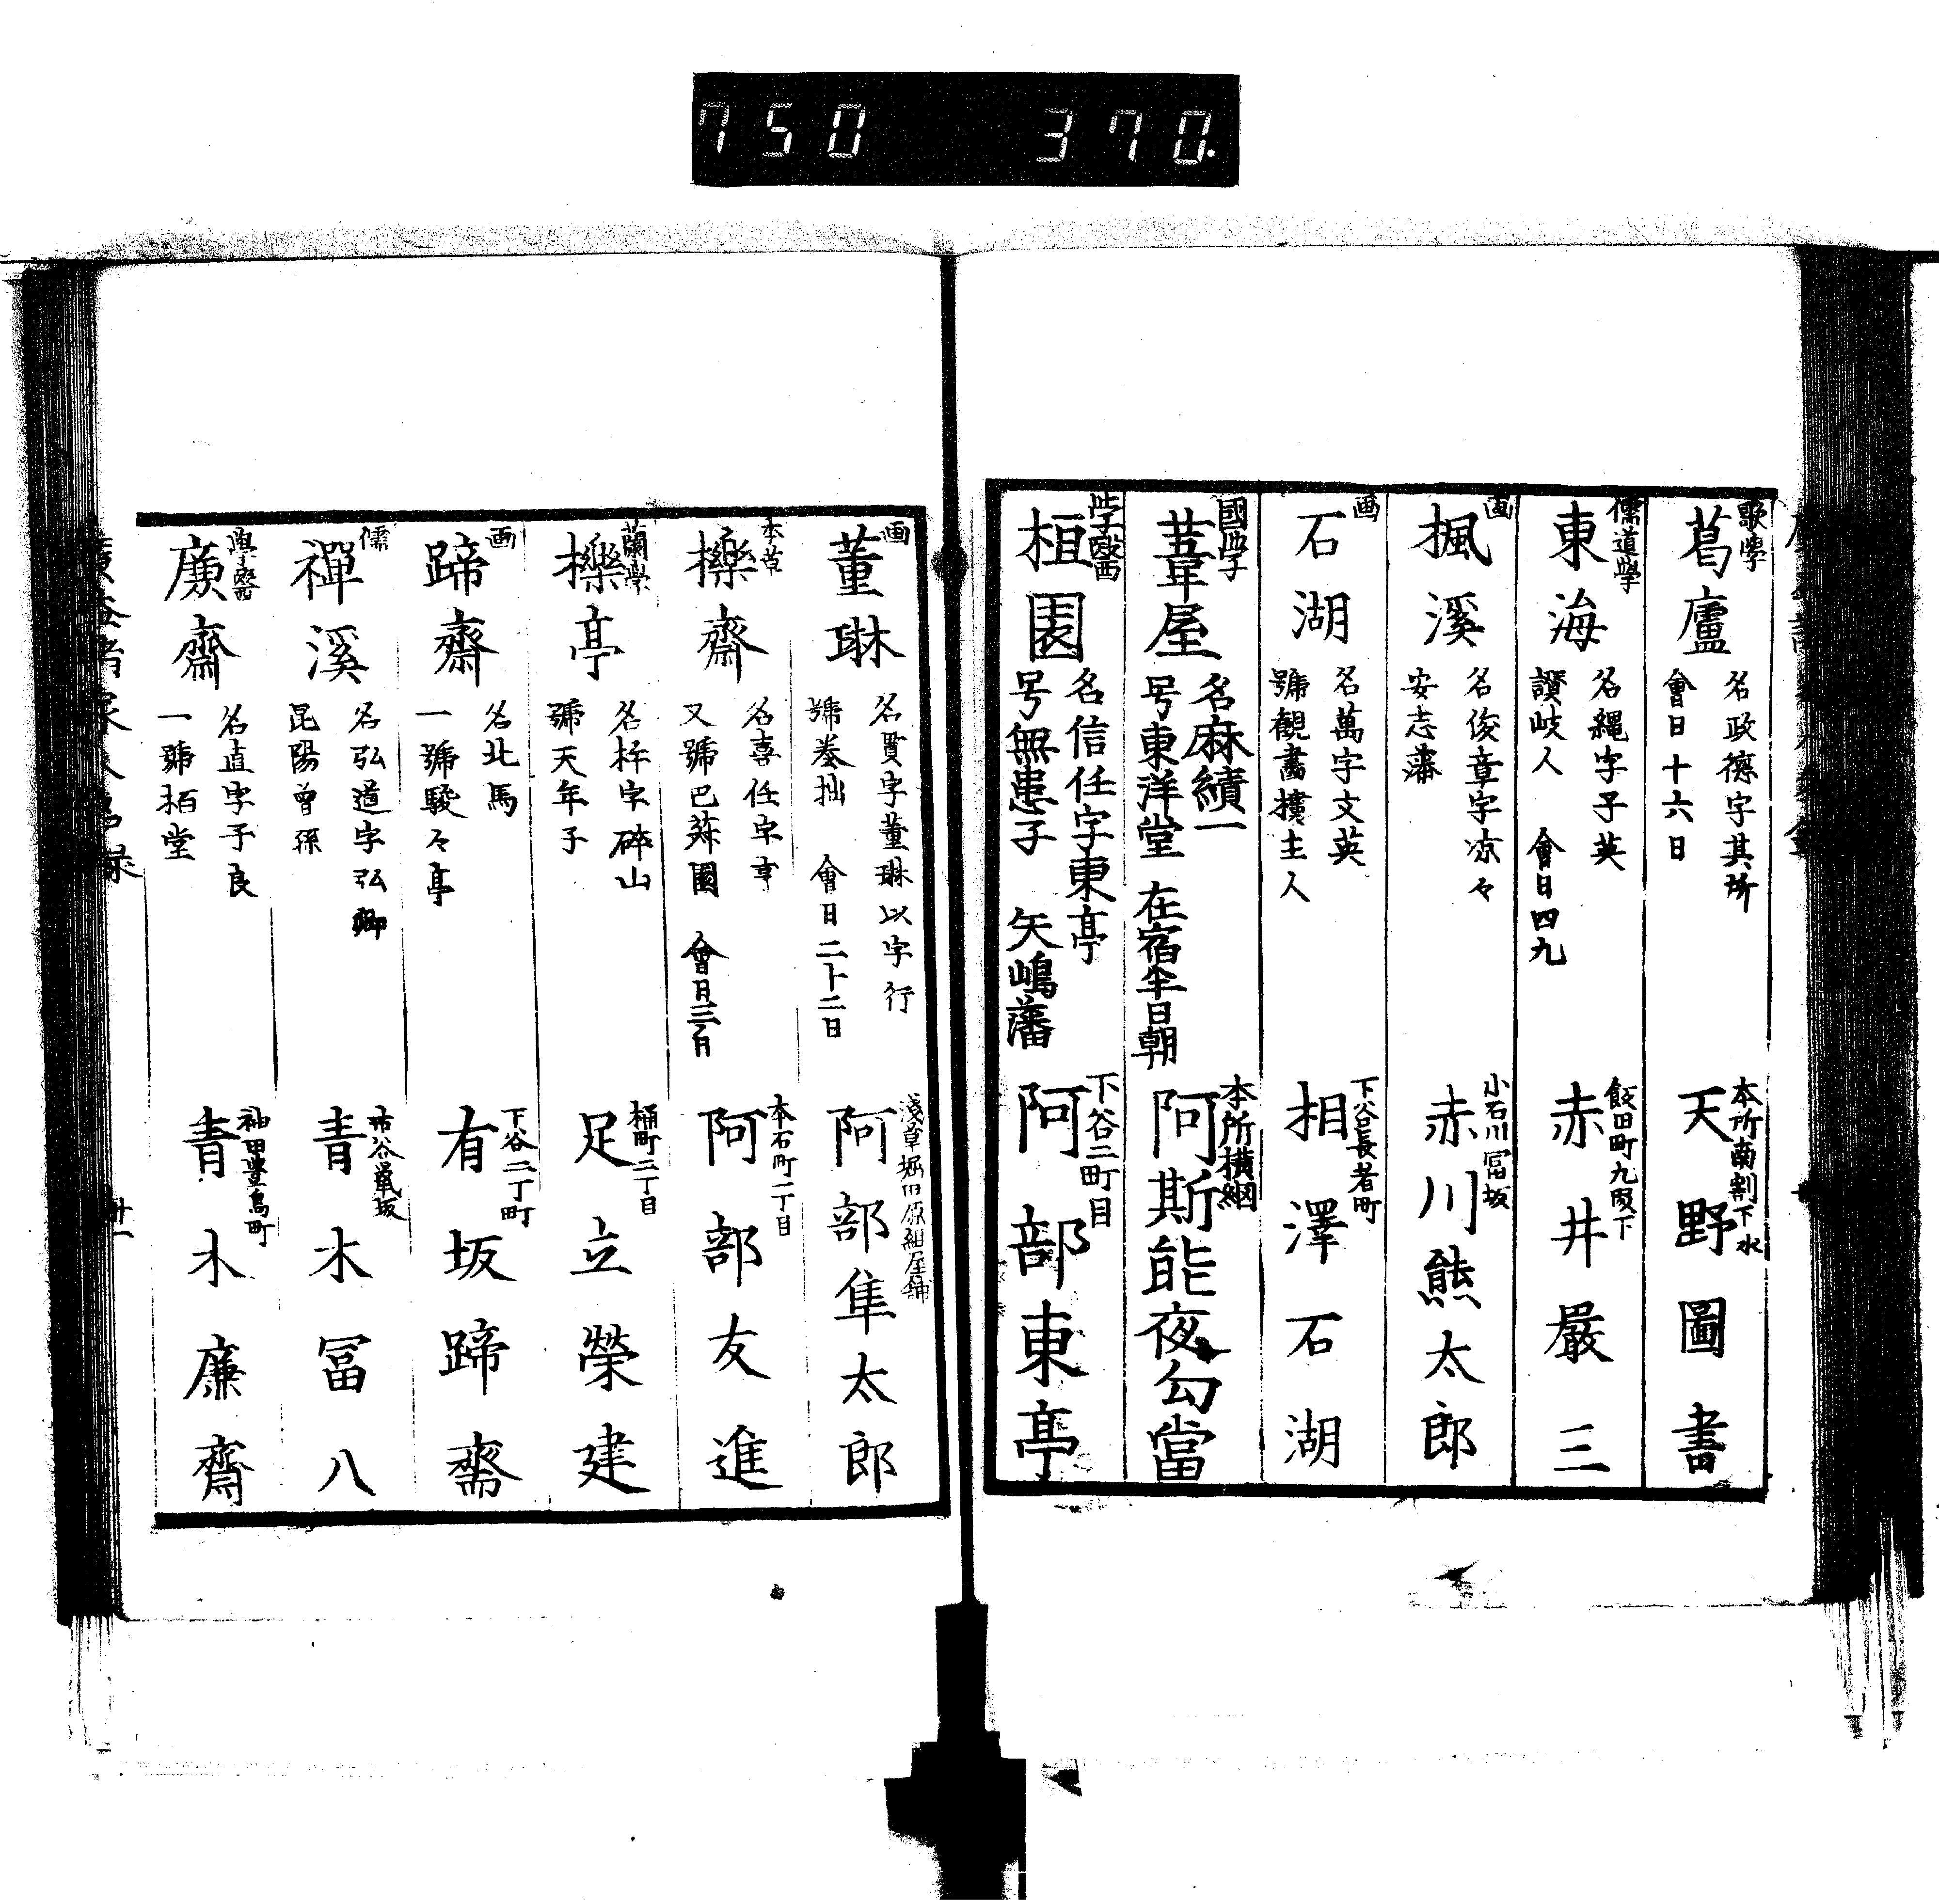 750 370.
歌學
葛廬
名政德字其所
會日十六日
本所南割下水
天野圖書
儒道學
東海
名繩字子英
讃岐人 會日四九
飯田町九段下
赤井嚴三
画
楓溪
名俊章字凉々
安志藩
小石川冨坂
赤川熊太郎
画
石湖
名萬字文英
號觀書樓主人
下谷長者町
相澤石湖
國学
葦屋
名麻續一
号東洋堂 在宿半日朝
本所横網
阿斯能夜勾當
学醫
桓園
名信任字東亭
号無患子 矢嶋藩
下谷二町目
阿部東亭
画
董琳
名賢字董琳以字行
號巻拙 會日二十二日
淺草堀田原組屋舗
阿部隼太郎
本草
櫟齋
名喜任字亨
又號巴菽園 會日三日
本石町二丁目
阿部友進
蘭學
櫟亭
名字碎山
號天年子
桶町二丁目
足立榮建
画
蹄齋
名北馬
一號駿々亭
下谷二丁町
有坂蹄齋
儒
禪溪
名弘道字弘卿
昆陽曾孫
市谷坂
青木冨八
學醫
廣齋
名直字子良
一號栢堂
神田豊島町
青木廉齋
廣益諸家人名録
廿一